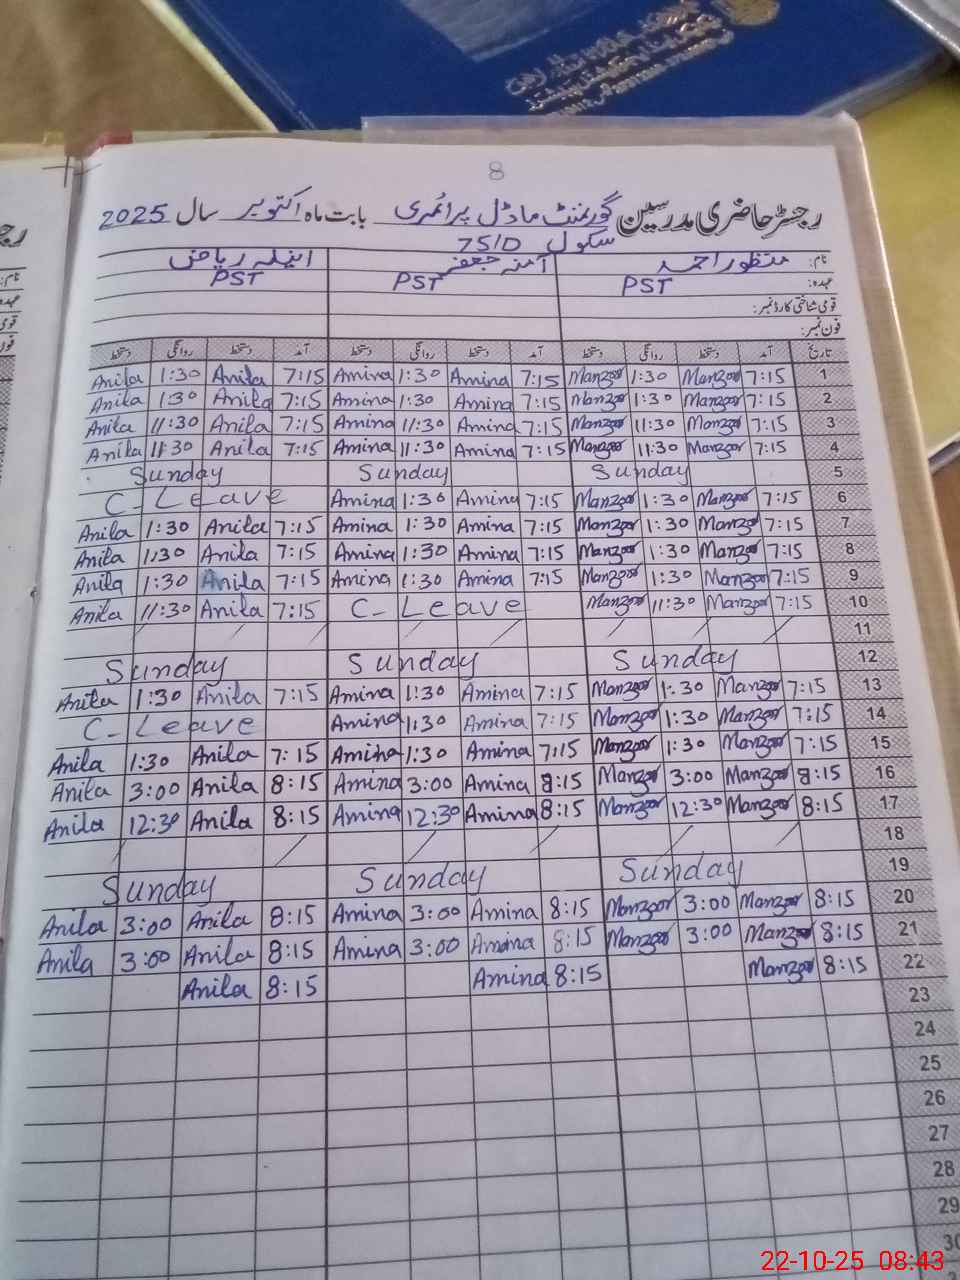 8
رجسٹر حاضری مدرسین گورنمنٹ ماڈل پرائمری بابت ماہ اکتوبر سال 2025
سکول 75/D
نام: منظور احمد آمنہ جعفر انیلہ ریاض
عہدہ: PST PST PST
قومی شناختی کارڈ نمبر:
فون نمبر:
تاریخ آمد دستخط روانگی دستخط آمد دستخط روانگی دستخط آمد دستخط روانگی دستخط
Anila 1:30 Anila 7:15 Amina 1:30 Amina 7:15 Manzoor 1:30 Manzoor 7:15 1
Anila 1:30 Anila 7:15 Amina 1:30 Amina 7:15 Manzoor 1:30 Manzoor 7:15 2
Anila 11:30 Anila 7:15 Amina 11:30 Amina 7:15 Manzoor 11:30 Manzoor 7:15 3
Anila 11:30 Anila 7:15 Amina 11:30 Amina 7:15 Manzoor 11:30 Manzoor 7:15 4
Sunday Sunday Sunday 5
C-Leave Amina 1:30 Amina 7:15 Manzoor 1:30 Manzoor 7:15 6
Anila 1:30 Anila 7:15 Amina 1:30 Amina 7:15 Manzoor 1:30 Manzoor 7:15 7
Anila 1:30 Anila 7:15 Amina 1:30 Amina 7:15 Manzoor 1:30 Manzoor 7:15 8
Anila 1:30 Anila 7:15 Amina 1:30 Amina 7:15 Manzoor 1:30 Manzoor 7:15 9
Anila 11:30 Anila 7:15 C-Leave Manzoor 11:30 Manzoor 7:15 10
11
Sunday Sunday Sunday 12
Anila 1:30 Anila 7:15 Amina 1:30 Amina 7:15 Manzoor 1:30 Manzoor 7:15 13
C-Leave Amina 1:30 Amina 7:15 Manzoor 1:30 Manzoor 7:15 14
Anila 1:30 Anila 7:15 Amina 1:30 Amina 7:15 Manzoor 1:30 Manzoor 7:15 15
Anila 3:00 Anila 8:15 Amina 3:00 Amina 8:15 Manzoor 3:00 Manzoor 8:15 16
Anila 12:30 Anila 8:15 Amina 12:30 Amina 8:15 Manzoor 12:30 Manzoor 8:15 17
18
Sunday Sunday Sunday 19
Anila 3:00 Anila 8:15 Amina 3:00 Amina 8:15 Manzoor 3:00 Manzoor 8:15 20
Anila 3:00 Anila 8:15 Amina 3:00 Amina 8:15 Manzoor 3:00 Manzoor 8:15 21
Anila 8:15 Amina 8:15 Manzoor 8:15 22
23
24
25
26
27
28
29
30
22-10-25 08:43